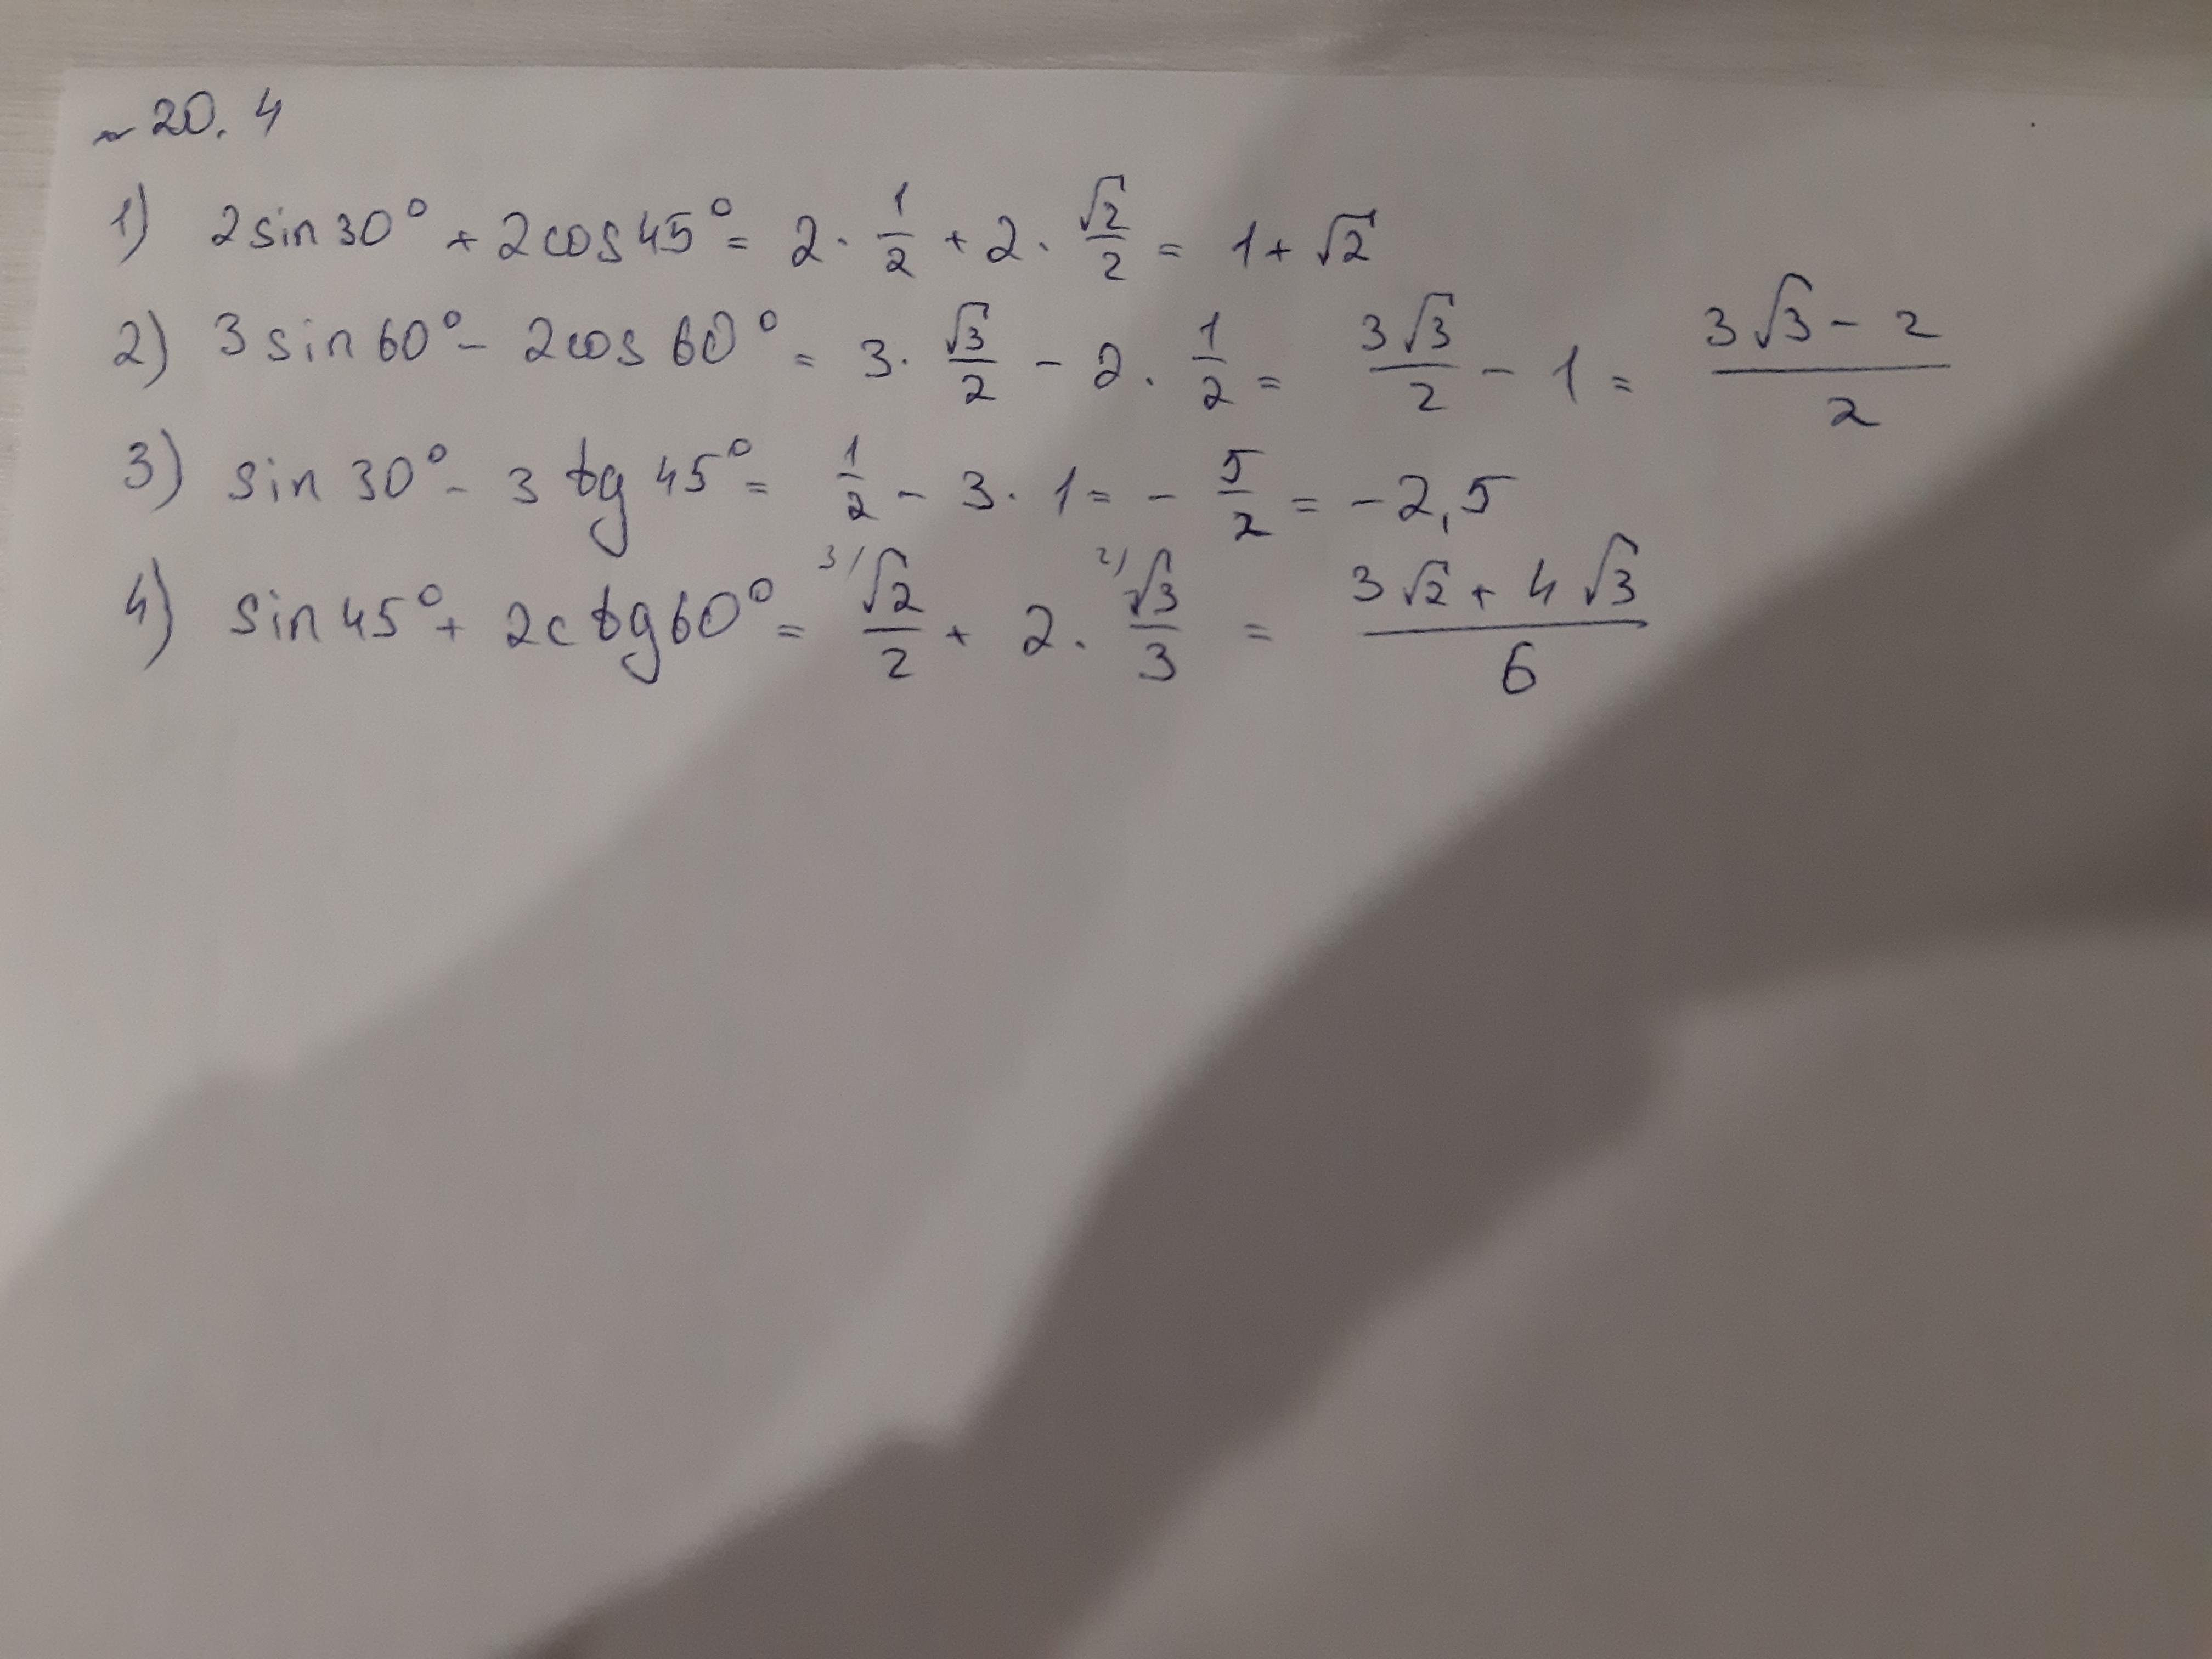 ~ 20.4
1) 2 sin 30° + 2 cos 45° = 2 · 1/2 + 2 · √2/2 = 1 + √2
2) 3 sin 60° - 2 cos 60° = 3 · √3/2 - 2 · 1/2 = 3√3/2 - 1 = (3√3 - 2)/2
3) sin 30° - 3 tg 45° = 1/2 - 3 · 1 = - 5/2 = -2,5
4) sin 45° + 2 ctg 60° = 3/ √2/2 + 2 · 2/ √3/3 = (3√2 + 4√3)/6